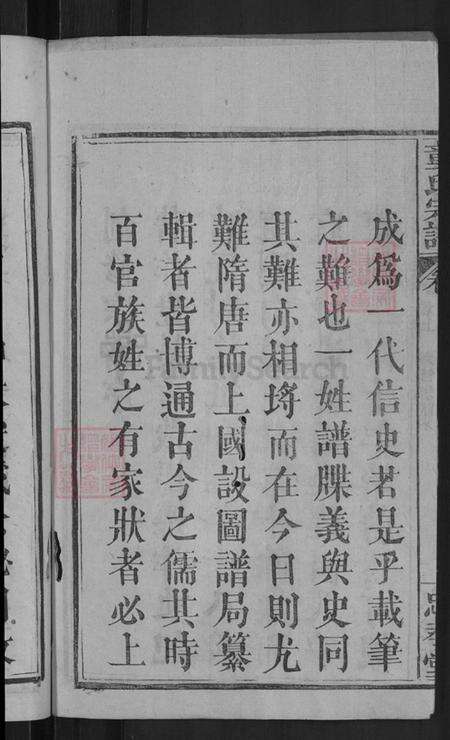 成爲一代信史若是乎載筆
之難也一姓譜牒義與史同
其難亦相埒而在今日則尤
難隋唐而上國設圖譜局纂
輯者皆博通古今之儒其時
百官族姓之有家狀者必上
FamilySearch